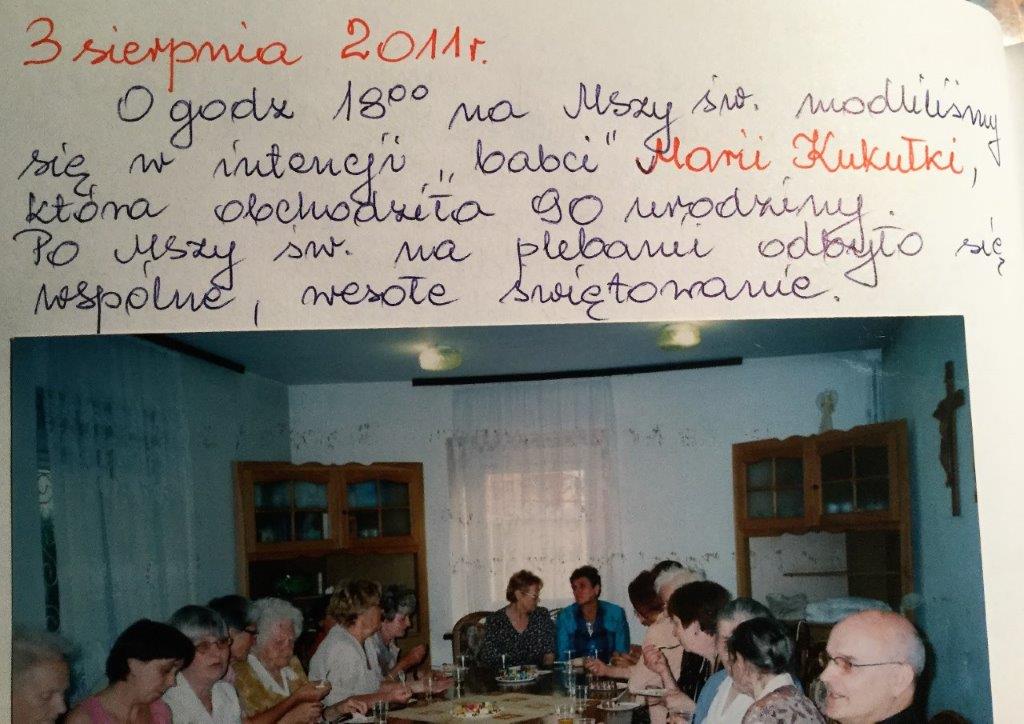 3 sierpnia 2011r.
O godz 18⁰⁰ na Mszy św. modliliśmy
się w intencji „babci" Marii Kukułki,
która obchodziła 90 urodziny.
Po Mszy św. na plebanii odbyło się
wspólne, wesołe świętowanie.